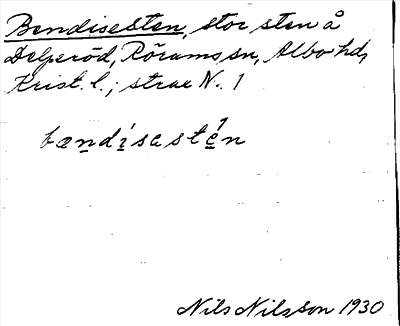 Bendisesten, stor sten å
Delperöd, Rörums sn, Albo hd,
Krist. l.; strax N. 1
bændisastén
Nils Nilsson 1930